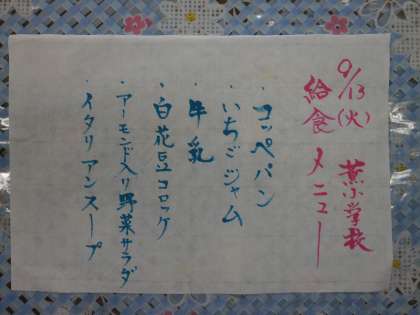 9/13(火) 薫小学校
給食メニュー
・コッペパン
・いちごジャム
・牛乳
・白花豆コロッケ
・アーモンド入り野菜サラダ
・イタリアンスープ